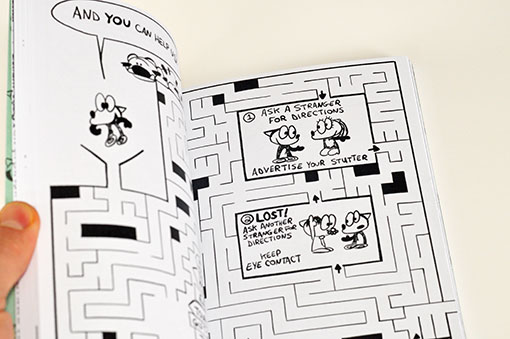 AND YOU CAN HELP
① ASK A STRANGER
FOR DIRECTIONS
ADVERTISE YOUR STUTTER
② LOST!
ASK ANOTHER
STRANGER FOR
DIRECTIONS
KEEP
EYE CONTACT